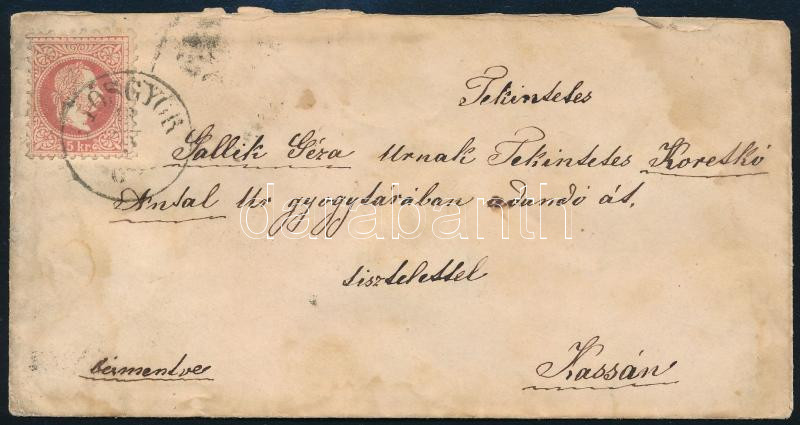 5 kr
IÓSGYŐR
Tekintetes
Sallik Géza Urnak Tekintetes Koretkó
Antal Ur gyogytarában adandó át,
tisztelettel
bérmentve
Kassán
darabanth